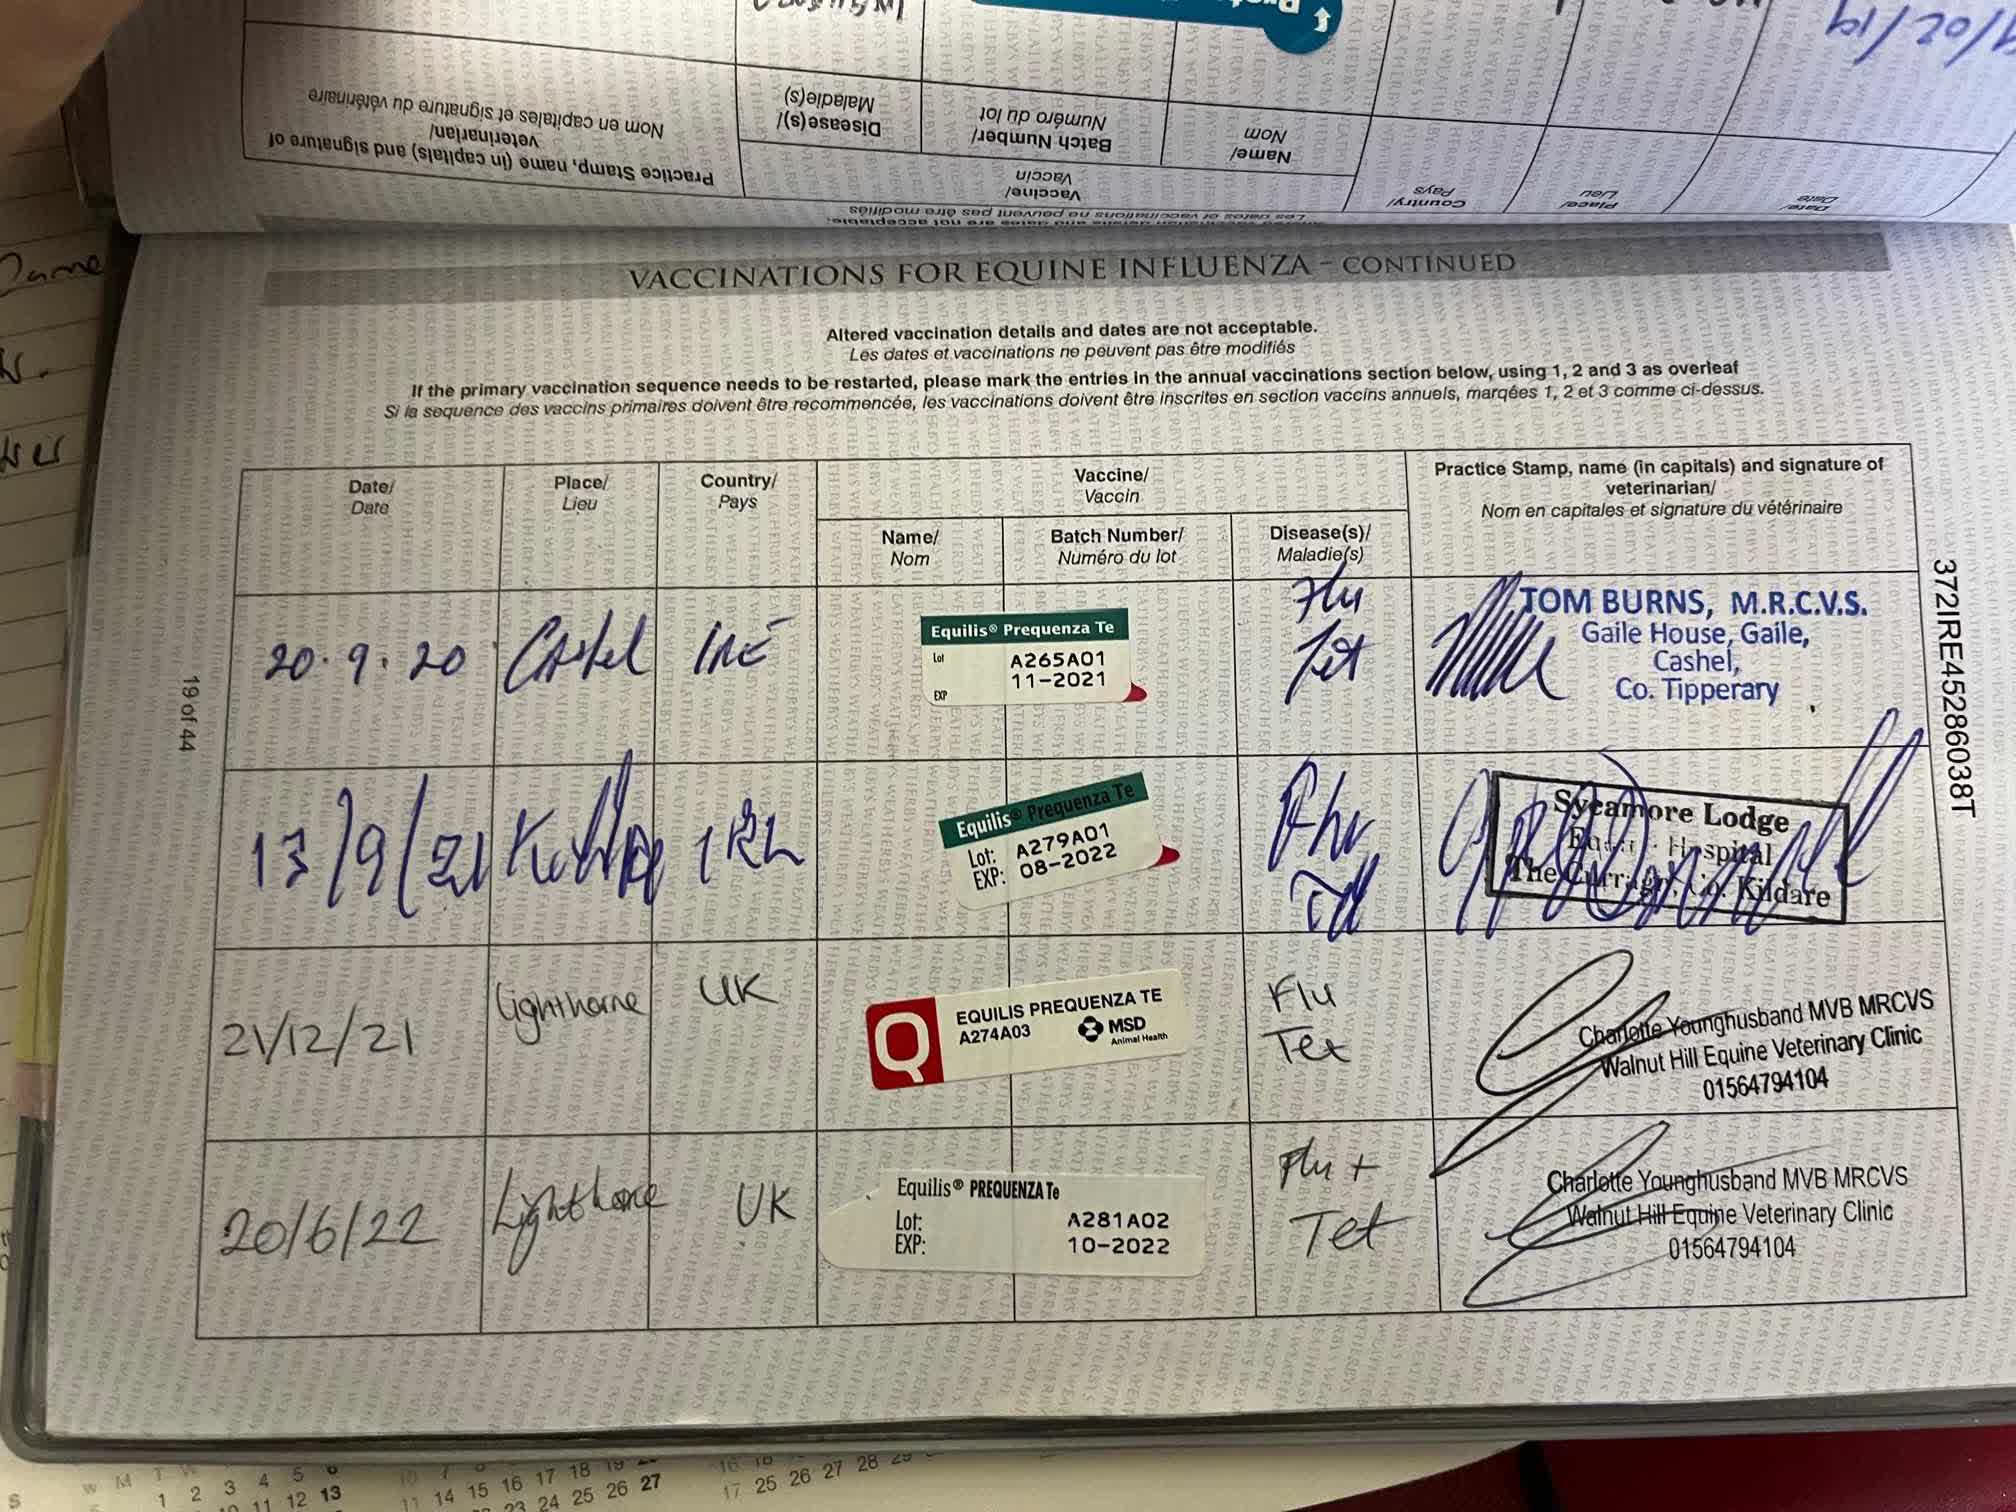 02/19
Practice Stamp, name (in capitals) and signature of
veterinarian/
Nom en capitales et signature du vétérinaire
Disease(s)/
Maladie(s)
Batch Number/
Numéro du lot
Name/
Nom
Vaccine/
Vaccin
Country/
Pays
Place/
Lieu
Date/
Date
details and dates are not acceptable.
Les dates et vaccinations ne peuvent pas être modifiés
VACCINATIONS FOR EQUINE INFLUENZA – CONTINUED
Altered vaccination details and dates are not acceptable.
Les dates et vaccinations ne peuvent pas être modifiés
If the primary vaccination sequence needs to be restarted, please mark the entries in the annual vaccinations section below, using 1, 2 and 3 as overleaf
Si la sequence des vaccins primaires doivent être recommencée, les vaccinations doivent être inscrites en section vaccins annuels, marqées 1, 2 et 3 comme ci-dessus.
Date/
Date
Place/
Lieu
Country/
Pays
Vaccine/
Vaccin
Name/
Nom
Batch Number/
Numéro du lot
Disease(s)/
Maladie(s)
Practice Stamp, name (in capitals) and signature of
veterinarian/
Nom en capitales et signature du vétérinaire
20.9.20
Cashel
IRE
Equilis® Prequenza Te
Lot A265A01
EXP 11-2021
Flu
Tet
TOM BURNS, M.R.C.V.S.
Gaile House, Gaile,
Cashel,
Co. Tipperary
13/9/21
IRL
Equilis® Prequenza Te
Lot: A279A01
EXP: 08-2022
Flu
Tet
Sycamore Lodge
Equine Hospital
The Curragh, Co. Kildare
21/12/21
Lighthorne
UK
Q
EQUILIS PREQUENZA TE
A274A03
MSD
Animal Health
Flu
Tet
Charlotte Younghusband MVB MRCVS
Walnut Hill Equine Veterinary Clinic
01564794104
20/6/22
Lighthorne
UK
Equilis® PREQUENZA Te
Lot: A281A02
EXP: 10-2022
Flu +
Tet
Charlotte Younghusband MVB MRCVS
Walnut Hill Equine Veterinary Clinic
01564794104
19 of 44
372IRE45286038T
S
W M T W
1 2 3 4 5 6
10 11 12 13
11 14 15 16 17 18 19
23 24 25 26 27
16 18
17 25 26 27 28 29